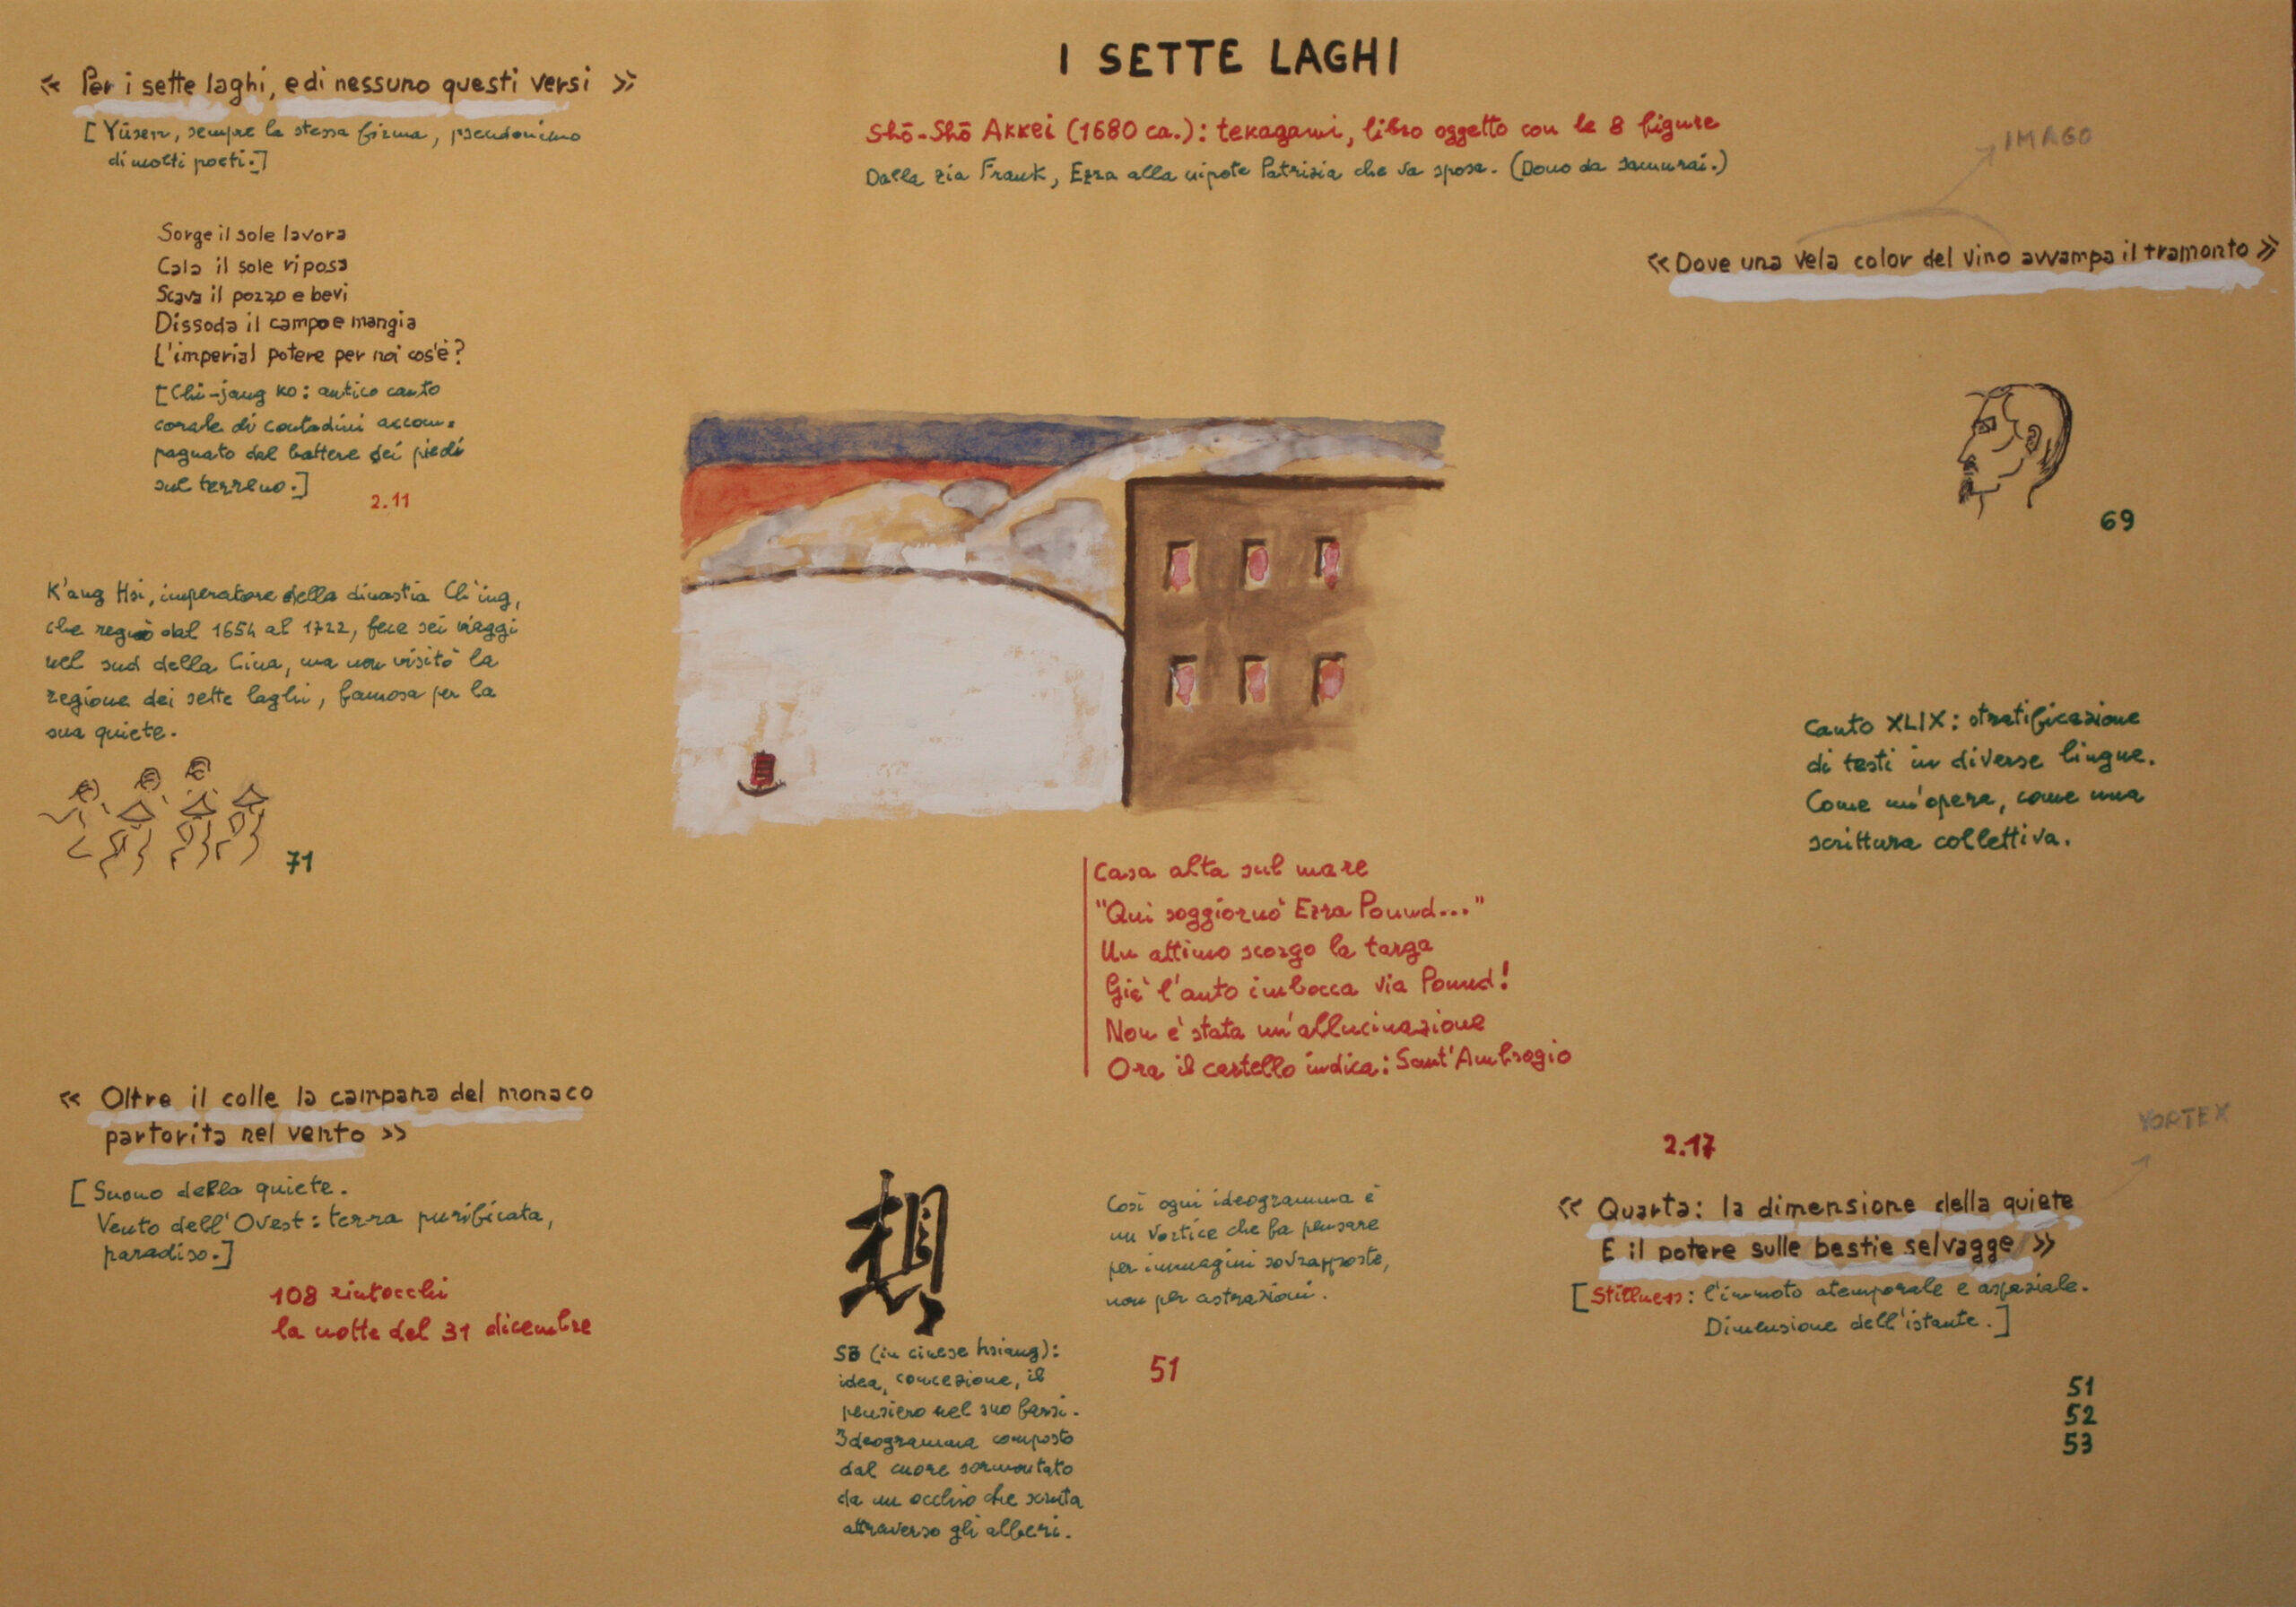 I SETTE LAGHI
« Per i sette laghi, e di nessuno questi versi »
[Yūsen, sempre la stessa firma, pseudonimo
di molti poeti.]
Shō-Shō Akkei (1680 ca.): tekagami, libro oggetto con le 8 figure
Dalla zia Frank, Ezra alla nipote Patrizia che va sposa. (Dono da samurai.)
IMAGO
«Dove una vela color del vino avvampa il tramonto»
Sorge il sole lavora
Cala il sole riposa
Scava il pozzo e bevi
Dissoda il campo e mangia
L'imperial potere per noi cos'è?
[Chi-jang ko: antico canto
corale di contadini accom=
pagnato dal battere dei piedi
sul terreno.]
2.11
69
K'ang Hsi, imperatore della dinastia Ch'ing,
che regnò dal 1654 al 1722, fece sei viaggi
nel sud della Cina, ma non visitò la
regione dei sette laghi, famosa per la
sua quiete.
71
Canto XLIX: stratificazione
di testi in diverse lingue.
Come un'opera, come una
scrittura collettiva.
Casa alta sul mare
"Qui soggiornò Ezra Pound..."
Un attimo scorgo la targa
Già l'auto imbocca via Pound!
Non è stata un'allucinazione
Ora il cartello indica: Sant'Ambrogio
« Oltre il colle la campana del monaco
partorita nel vento »
[Suono della quiete.
Vento dell'Ovest: terra purificata,
paradiso.]
108 rintocchi
la notte del 31 dicembre
想
Sō (in cinese hsiang):
idea, concezione, il
pensiero nel suo farsi.
Ideogramma composto
dal cuore sormontato
da un occhio che scruta
attraverso gli alberi.
Così ogni ideogramma è
un vortice che fa pensare
per immagini sovrapposte,
non per astrazioni.
51
VORTEX
2.17
« Quarta: la dimensione della quiete
E il potere sulle bestie selvagge »
[Stillness: l'immoto atemporale e aspaziale.
Dimensione dell'istante.]
51
52
53